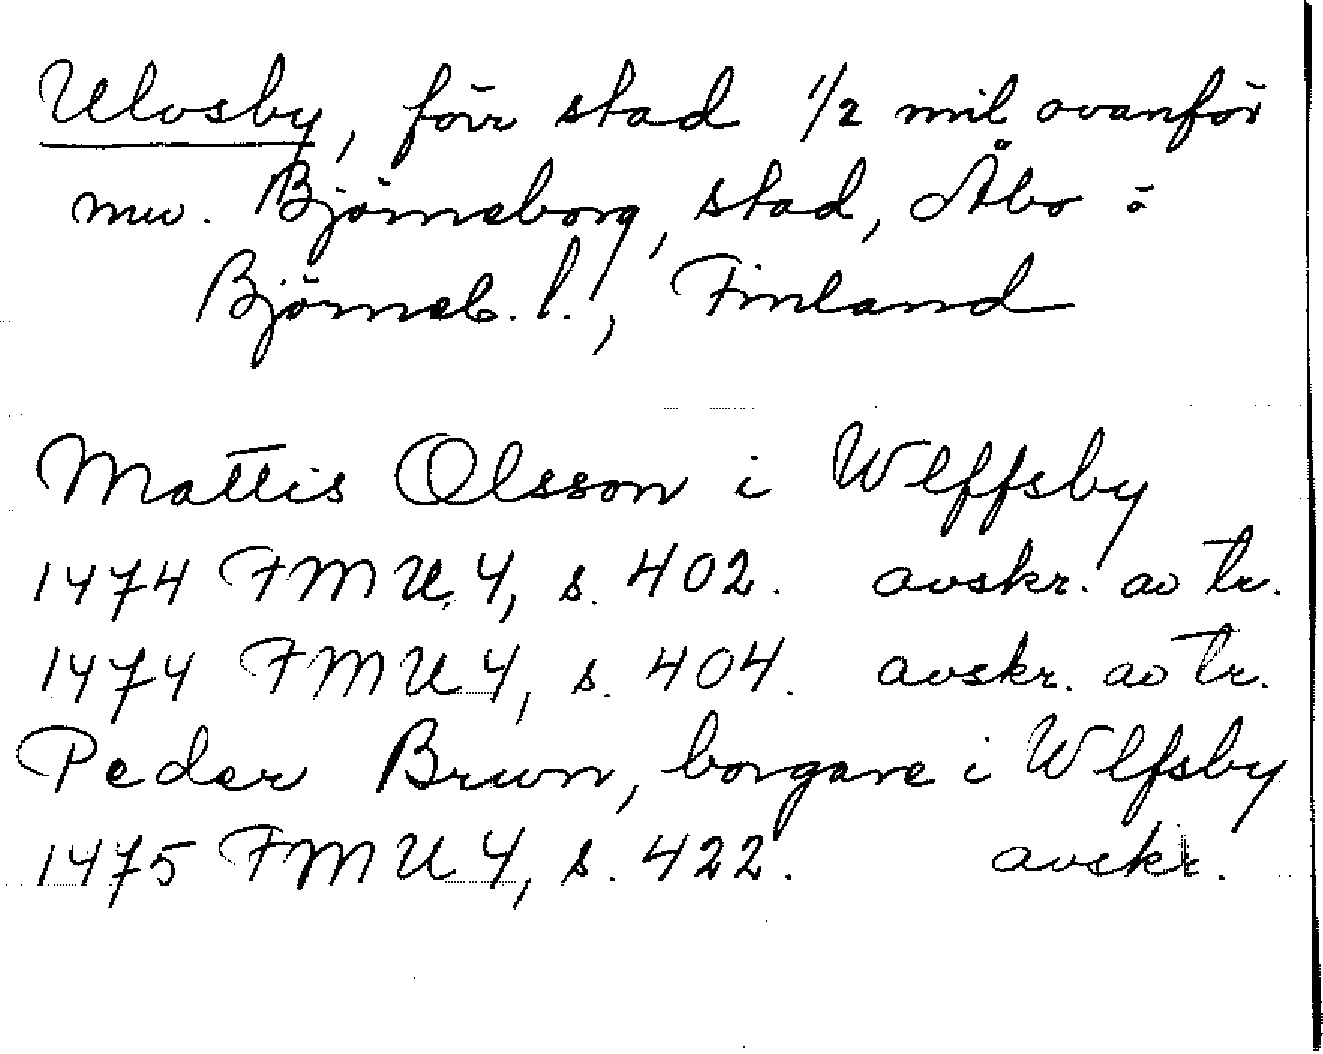 Ulvsby, förr stad 1/2 mil ovanför
nuv. Björneborg, stad, Åbo o
Björneb. l., Finland
Mattis Olsson i Wlffsby
1474 FMU 4, s. 402. avskr. av tr.
1474 FMU 4, s. 404. avskr. av tr.
Peder Brwn, borgare i Wlfsby
1475 FMU 4, s. 422. avskr.